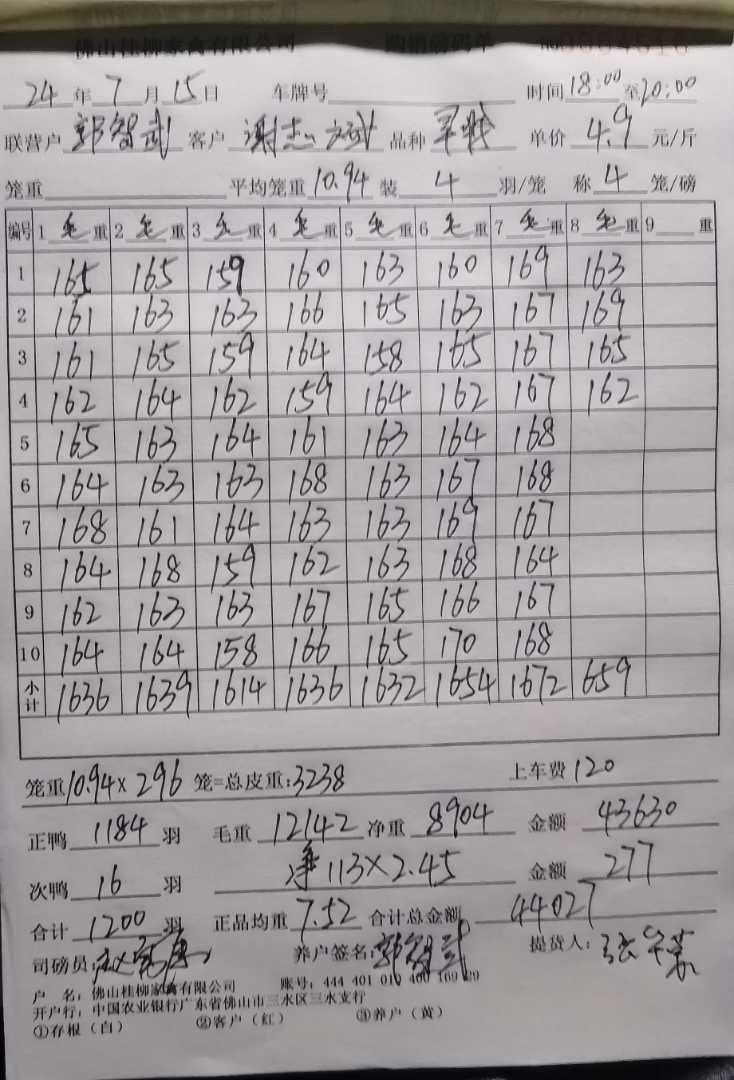 佛山桂柳家禽有限公司 购销磅码单
24年7月15日 车牌号 时间18:00至20:00
联营户 郭智武 客户 谢志斌 品种 单价 4.9 元/斤
笼重 平均笼重 10.94 装 4 羽/笼 称 4 笼/磅
编号 1 毛重 2 毛重 3 毛重 4 毛重 5 毛重 6 毛重 7 毛重 8 毛重 9 重
1 165 165 159 160 163 160 169 163
2 161 163 163 166 165 163 167 169
3 161 165 159 164 158 165 167 165
4 162 164 162 159 164 162 167 162
5 165 163 164 161 163 164 168
6 164 163 163 168 163 167 168
7 168 161 164 163 163 169 167
8 164 168 159 162 163 168 164
9 162 163 163 167 165 166 167
10 164 164 158 166 165 170 168
小计 1636 1639 1614 1636 1632 1654 1672 659
笼重 10.94×296 笼=总皮重:3238 上车费 120
正鸭 1184 羽 毛重 12142 净重 8904 金额 43630
次鸭 16 羽 净 113×2.45 金额 277
合计 1200 羽 正品均重 7.52 合计总金额 44027
司磅员: 养户签名: 郭智武 提货人:
户 名: 佛山桂柳家禽有限公司 账号: 444 401 010 400 169 29
开户行: 中国农业银行广东省佛山市三水区三水支行
①存根（白） ②客户（红） ③养户（黄）